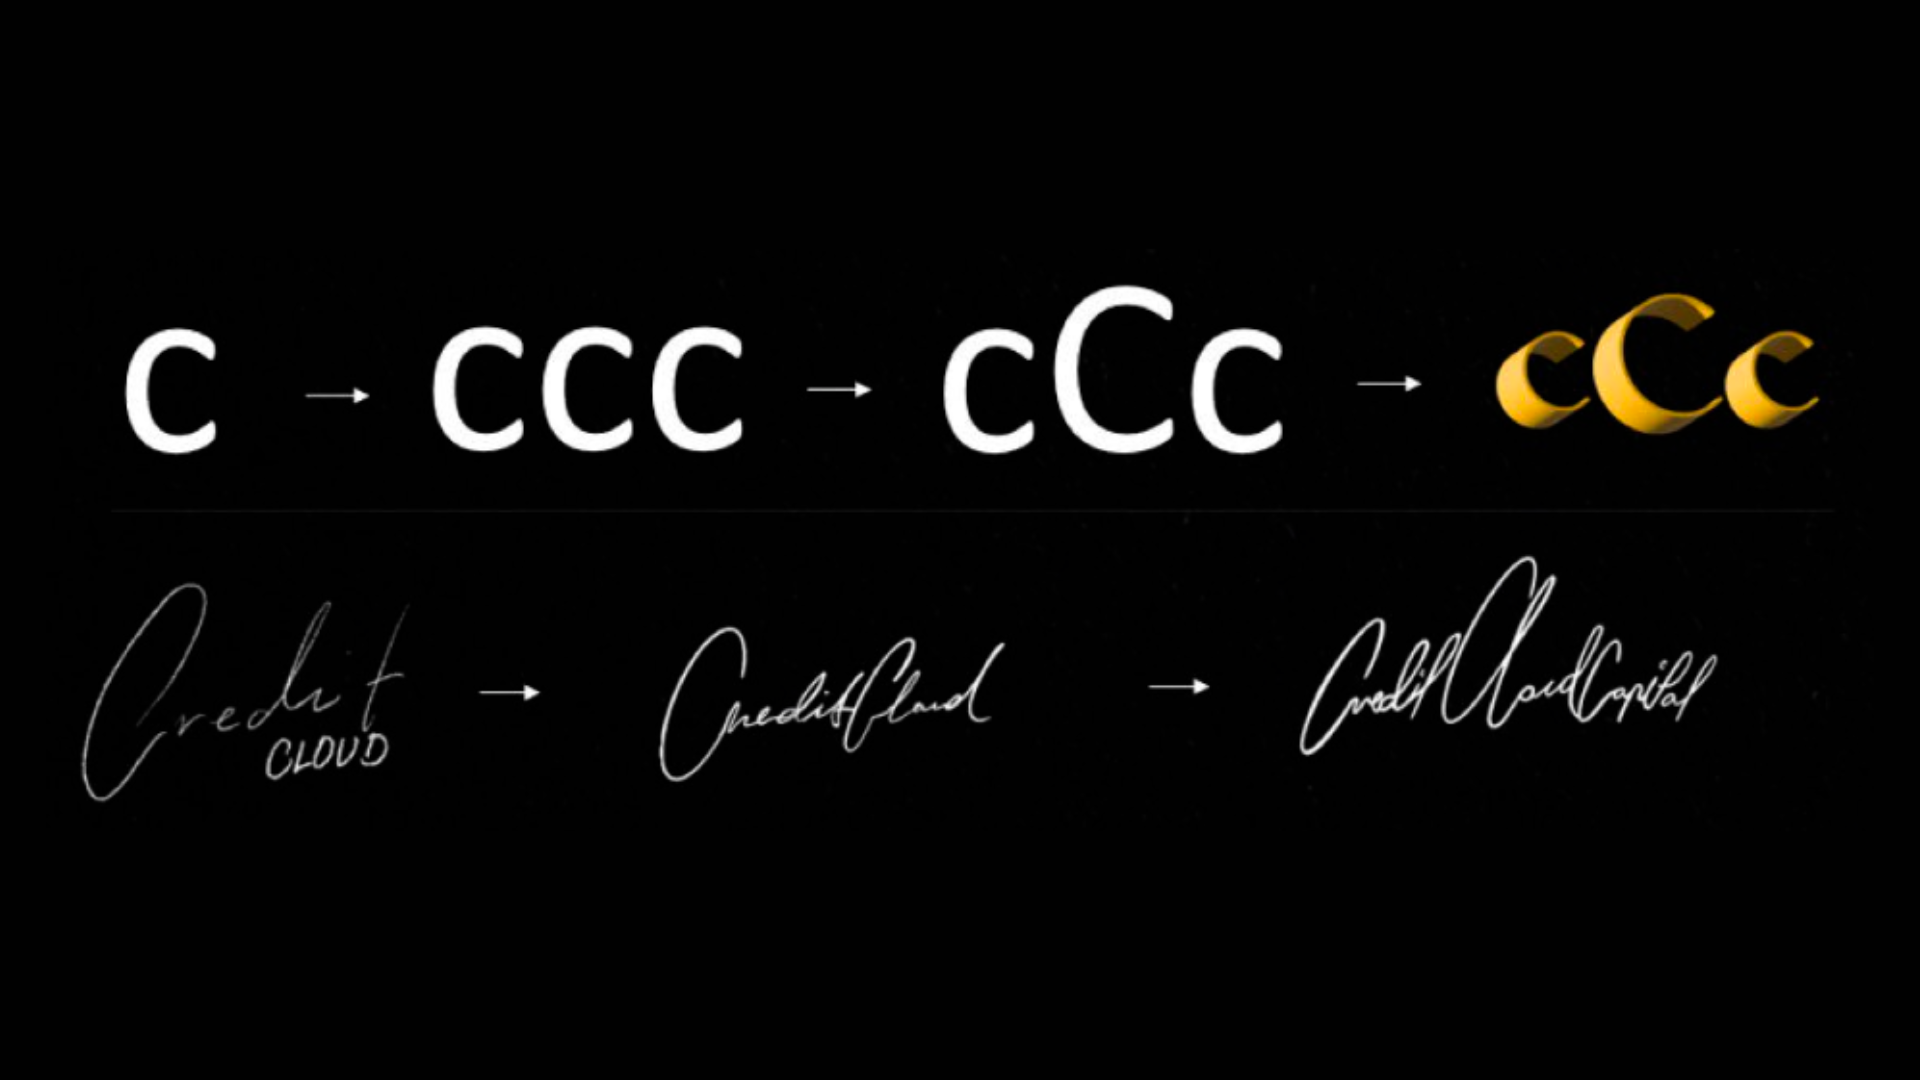 c → ccc → cCc → cCc
Credit CLOUD → CreditCloud → CreditCloudCapital